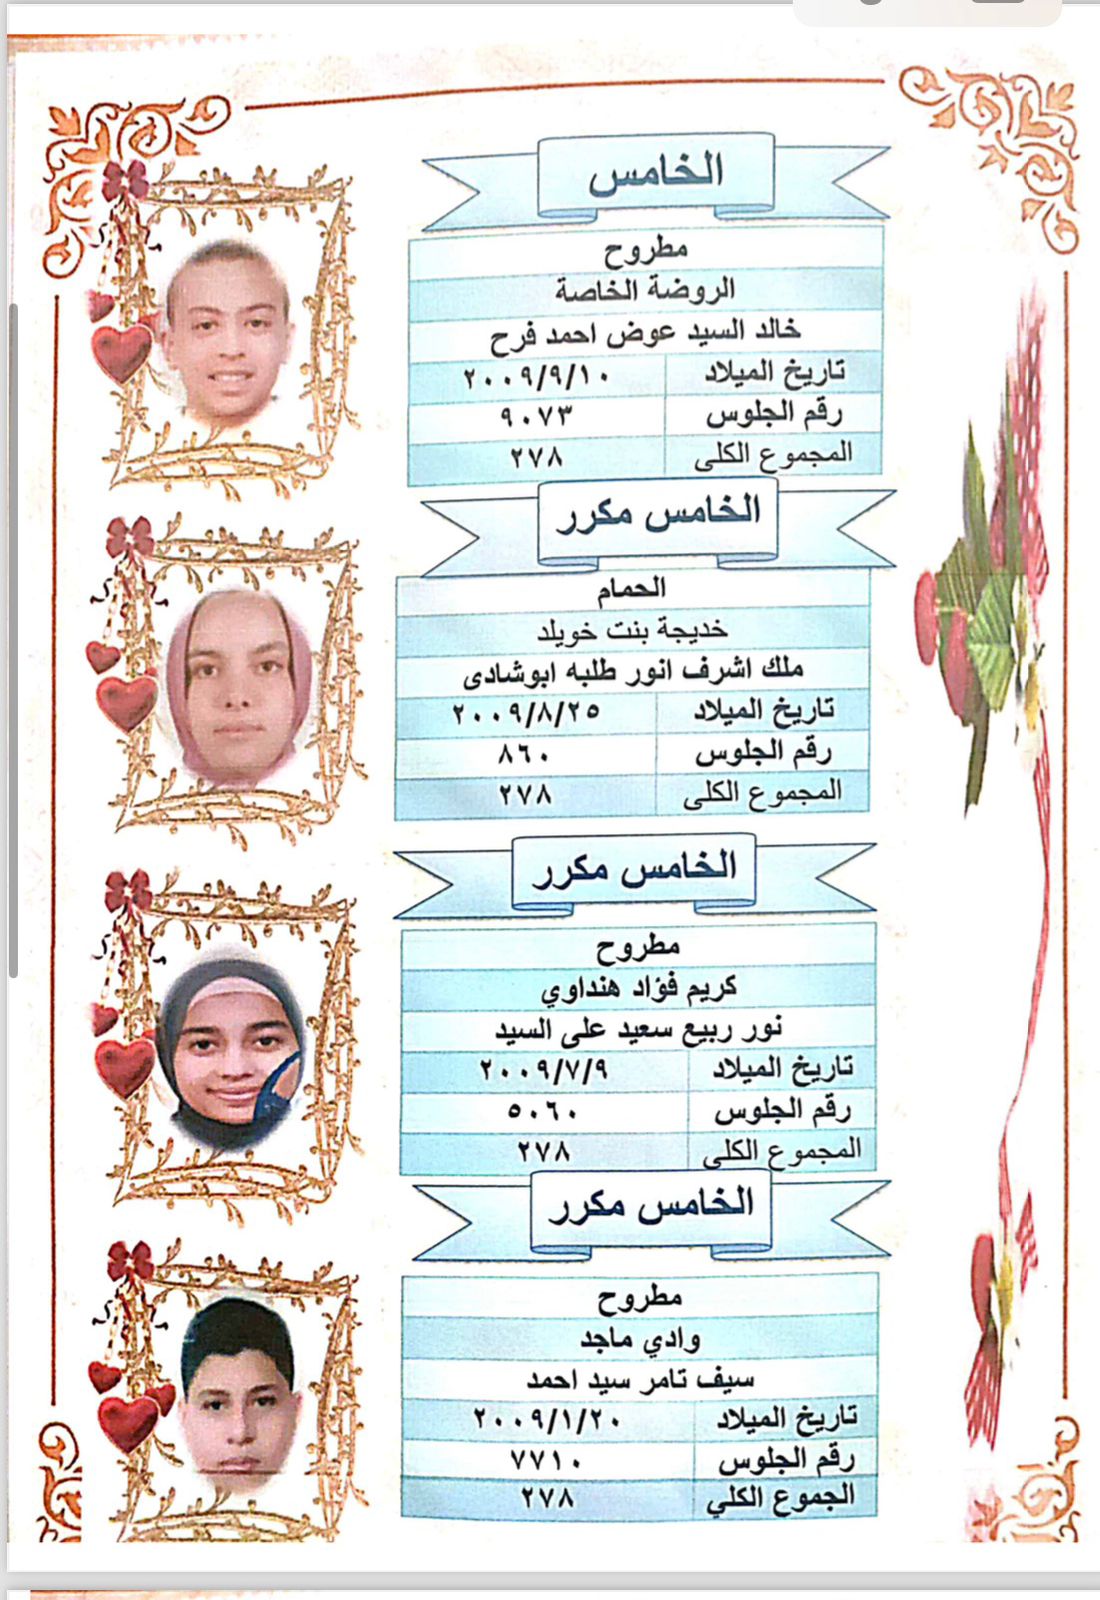 الخامس
مطروح
الروضة الخاصة
خالد السيد عوض احمد فرح
تاريخ الميلاد ٢٠٠٩/٩/١٠
رقم الجلوس ٩٠٧٣
المجموع الكلى ٢٧٨
الخامس مكرر
الحمام
خديجة بنت خويلد
ملك اشرف انور طلبه ابوشادى
تاريخ الميلاد ٢٠٠٩/٨/٢٥
رقم الجلوس ٨٦٠
المجموع الكلى ٢٧٨
الخامس مكرر
مطروح
كريم فؤاد هنداوي
نور ربيع سعيد على السيد
تاريخ الميلاد ٢٠٠٩/٧/٩
رقم الجلوس ٥٠٦٠
المجموع الكلى ٢٧٨
الخامس مكرر
مطروح
وادي ماجد
سيف تامر سيد احمد
تاريخ الميلاد ٢٠٠٩/١/٢٠
رقم الجلوس ٧٧١٠
الجموع الكلي ٢٧٨